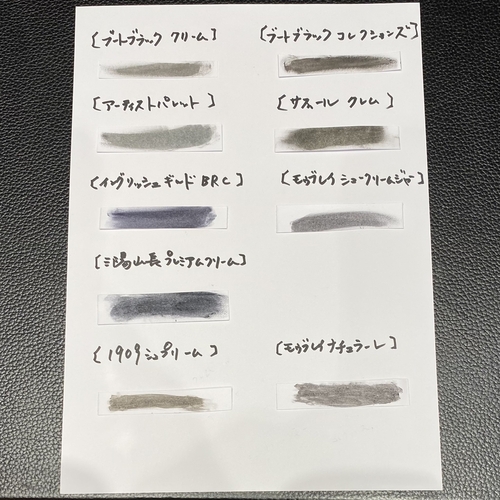 [ブートブラック クリーム]
[ブートブラック コレクションズ]
[アーティストパレット]
[サフィール クレム]
[イングリッシュギルド BRC]
[モゥブレイ シュークリームジャー]
[三陽山長 プレミアムクリーム]
[1909 シュプリーム]
[モゥブレイナチュラーレ]